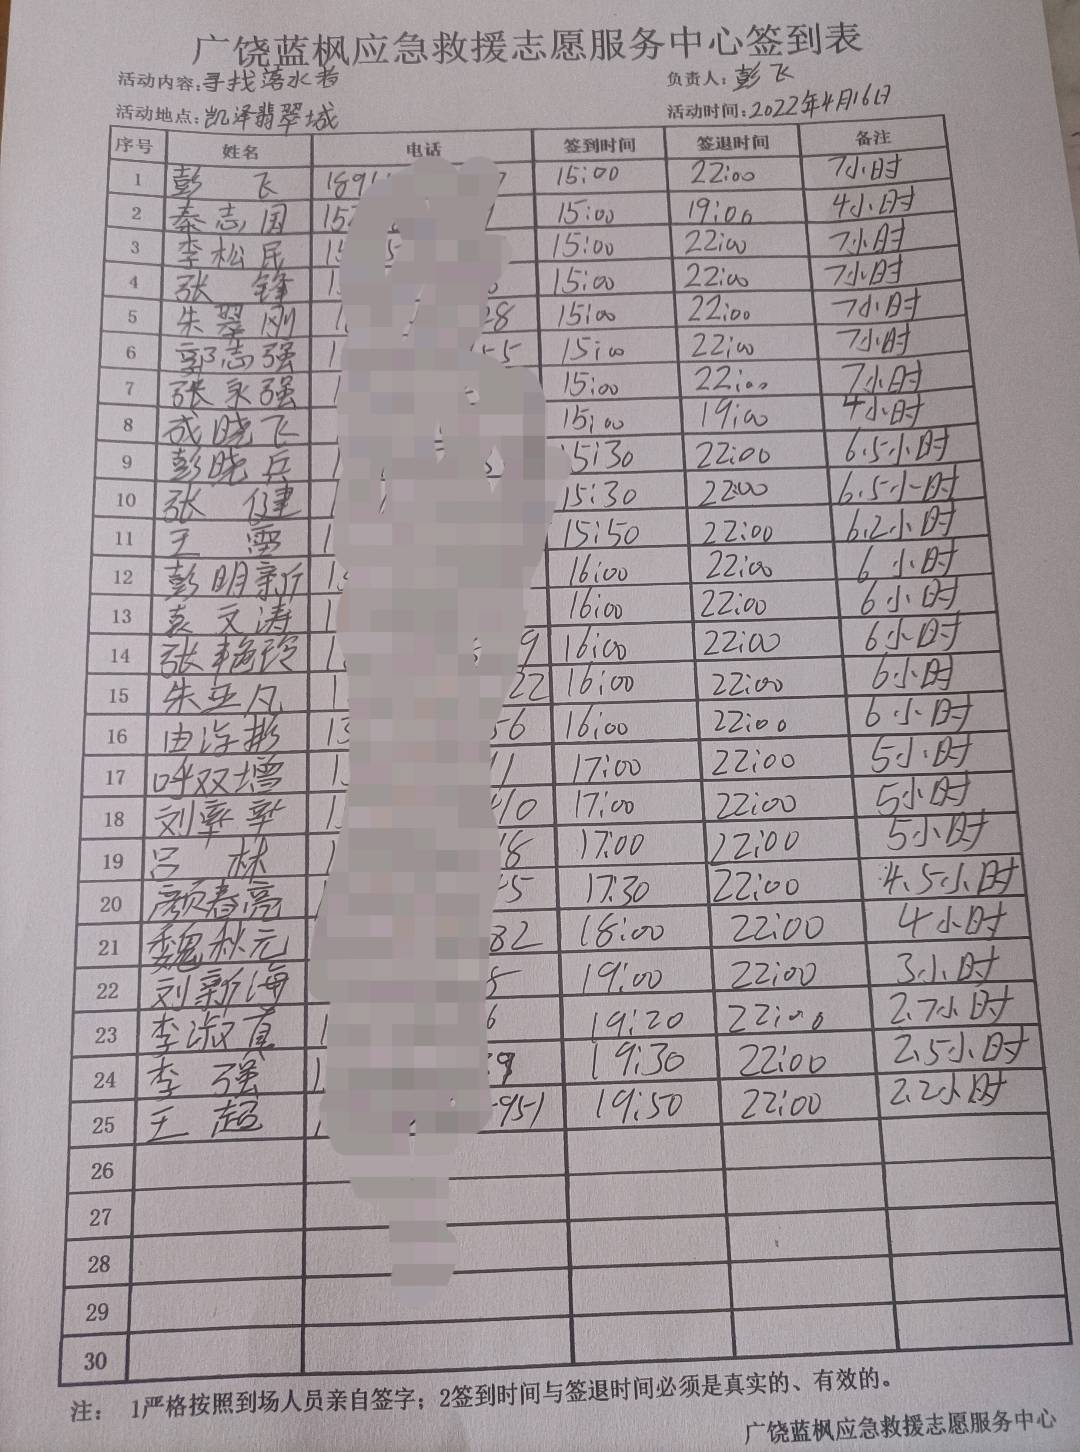 广饶蓝枫应急救援志愿服务中心签到表
活动内容:寻找落水者 负责人:彭飞
活动地点:凯泽翡翠城 活动时间:2022年4月16日
序号 姓名 电话 签到时间 签退时间 备注
1 彭飞 189 15:00 22:00 7小时
2 秦志国 15 15:00 19:00 4小时
3 李松民 15:00 22:00 7小时
4 张锋 15:00 22:00 7小时
5 朱翠刚 28 15:00 22:00 7小时
6 郭志强 1 55 15:00 22:00 7小时
7 张永强 15:00 22:00 7小时
8 成晓飞 15:00 19:00 4小时
9 彭晓兵 15:30 22:00 6.5小时
10 张健 15:30 22:00 6.5小时
11 王雪 15:50 22:00 6.2小时
12 彭明新 16:00 22:00 6小时
13 袁文涛 16:00 22:00 6小时
14 张艳玲 9 16:00 22:00 6小时
15 朱亚凡 1 22 16:00 22:00 6小时
16 由 13 56 16:00 22:00 6小时
17 呼双 11 17:00 22:00 5小时
18 刘 410 17:00 22:00 5小时
19 吕林 18 17:00 22:00 5小时
20 颜春亮 5 17:30 22:00 4.5小时
21 魏秋元 82 18:00 22:00 4小时
22 刘新海 5 19:00 22:00 3小时
23 李淑真 1 6 19:20 22:00 2.7小时
24 李强 1 9 19:30 22:00 2.5小时
25 王超 951 19:50 22:00 2.2小时
26
27
28
29
30
注： 1严格按照到场人员亲自签字；2签到时间与签退时间必须是真实的、有效的。
广饶蓝枫应急救援志愿服务中心